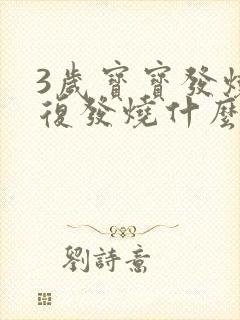 3歲寶寶發燒
復發燒什麼
劉詩意